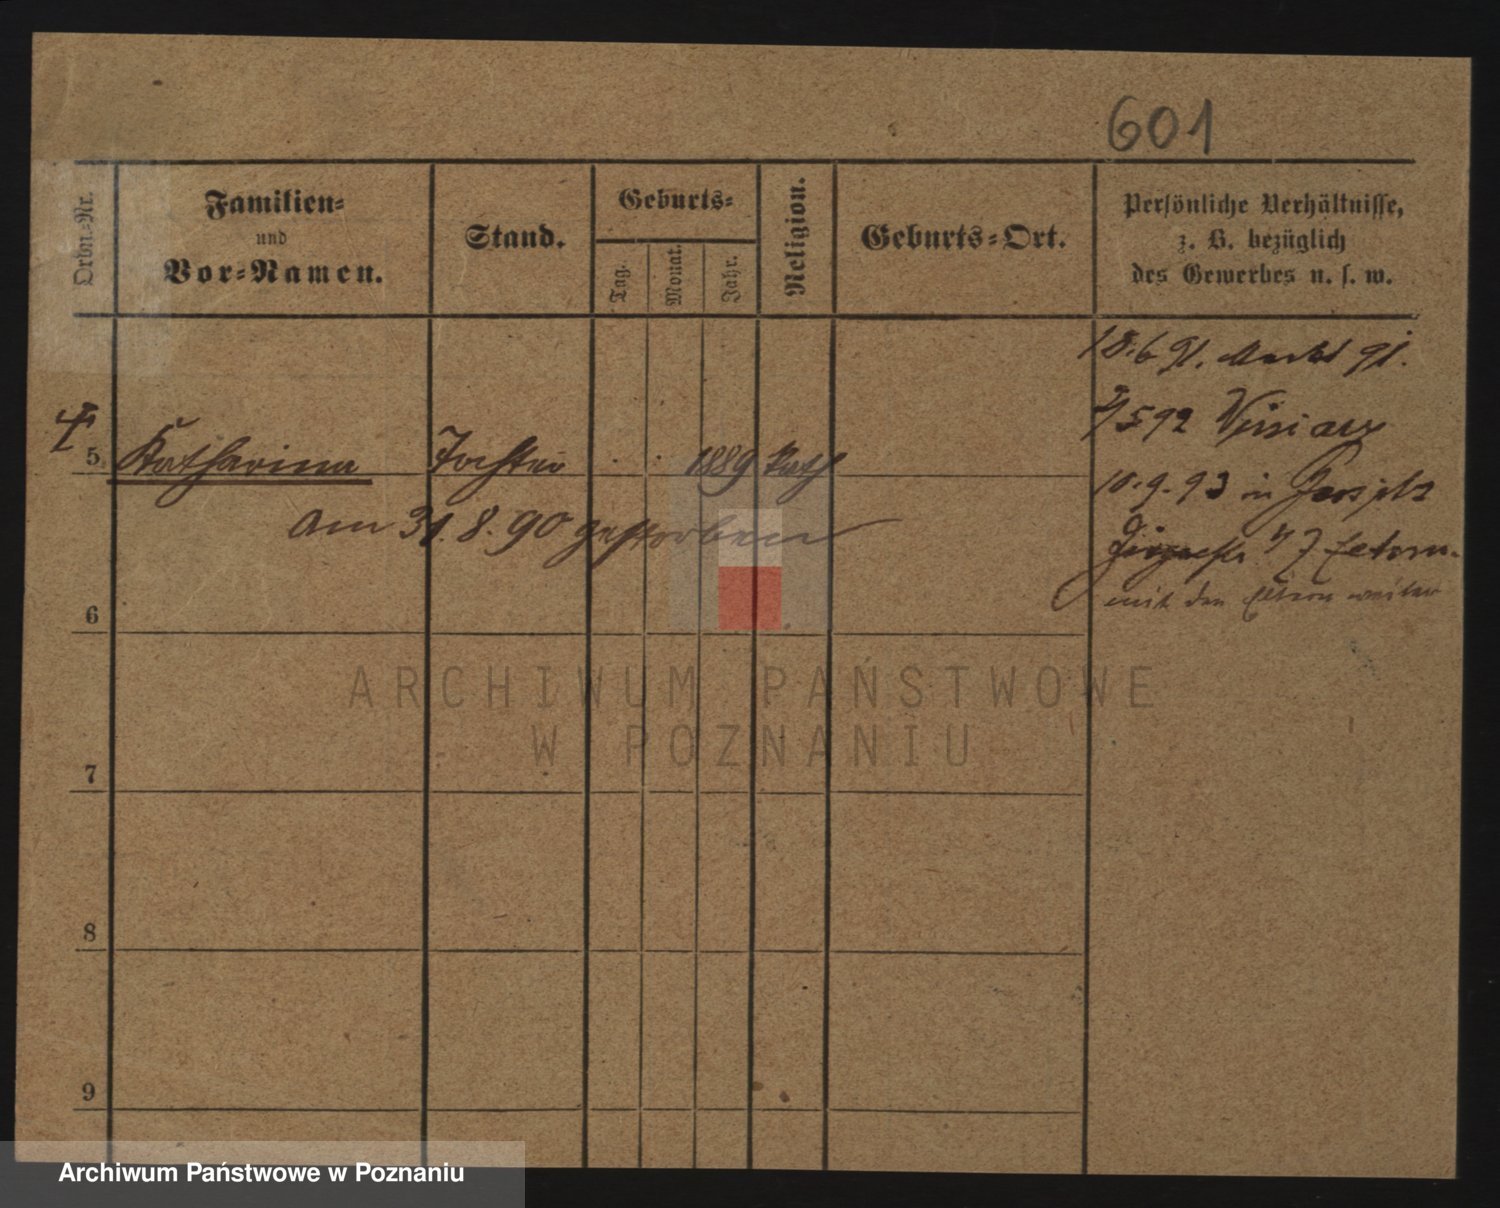 601
Ordn.-Nr.
Familien-
und
Vor-Namen.
Stand.
Geburts-
Tag.
Monat.
Jahr.
Religion.
Geburts-Ort.
Persönliche Verhältnisse,
z. B. bezüglich
des Gewerbes u. s. w.
18.6.91.
5 Katharina Tochter . . 1889 kath
10.9.93 in
am 31.8.90 gestorben
mit den Eltern weiter
6
7
8
9
ARCHIWUM PAŃSTWOWE
W POZNANIU
Archiwum Państwowe w Poznaniu